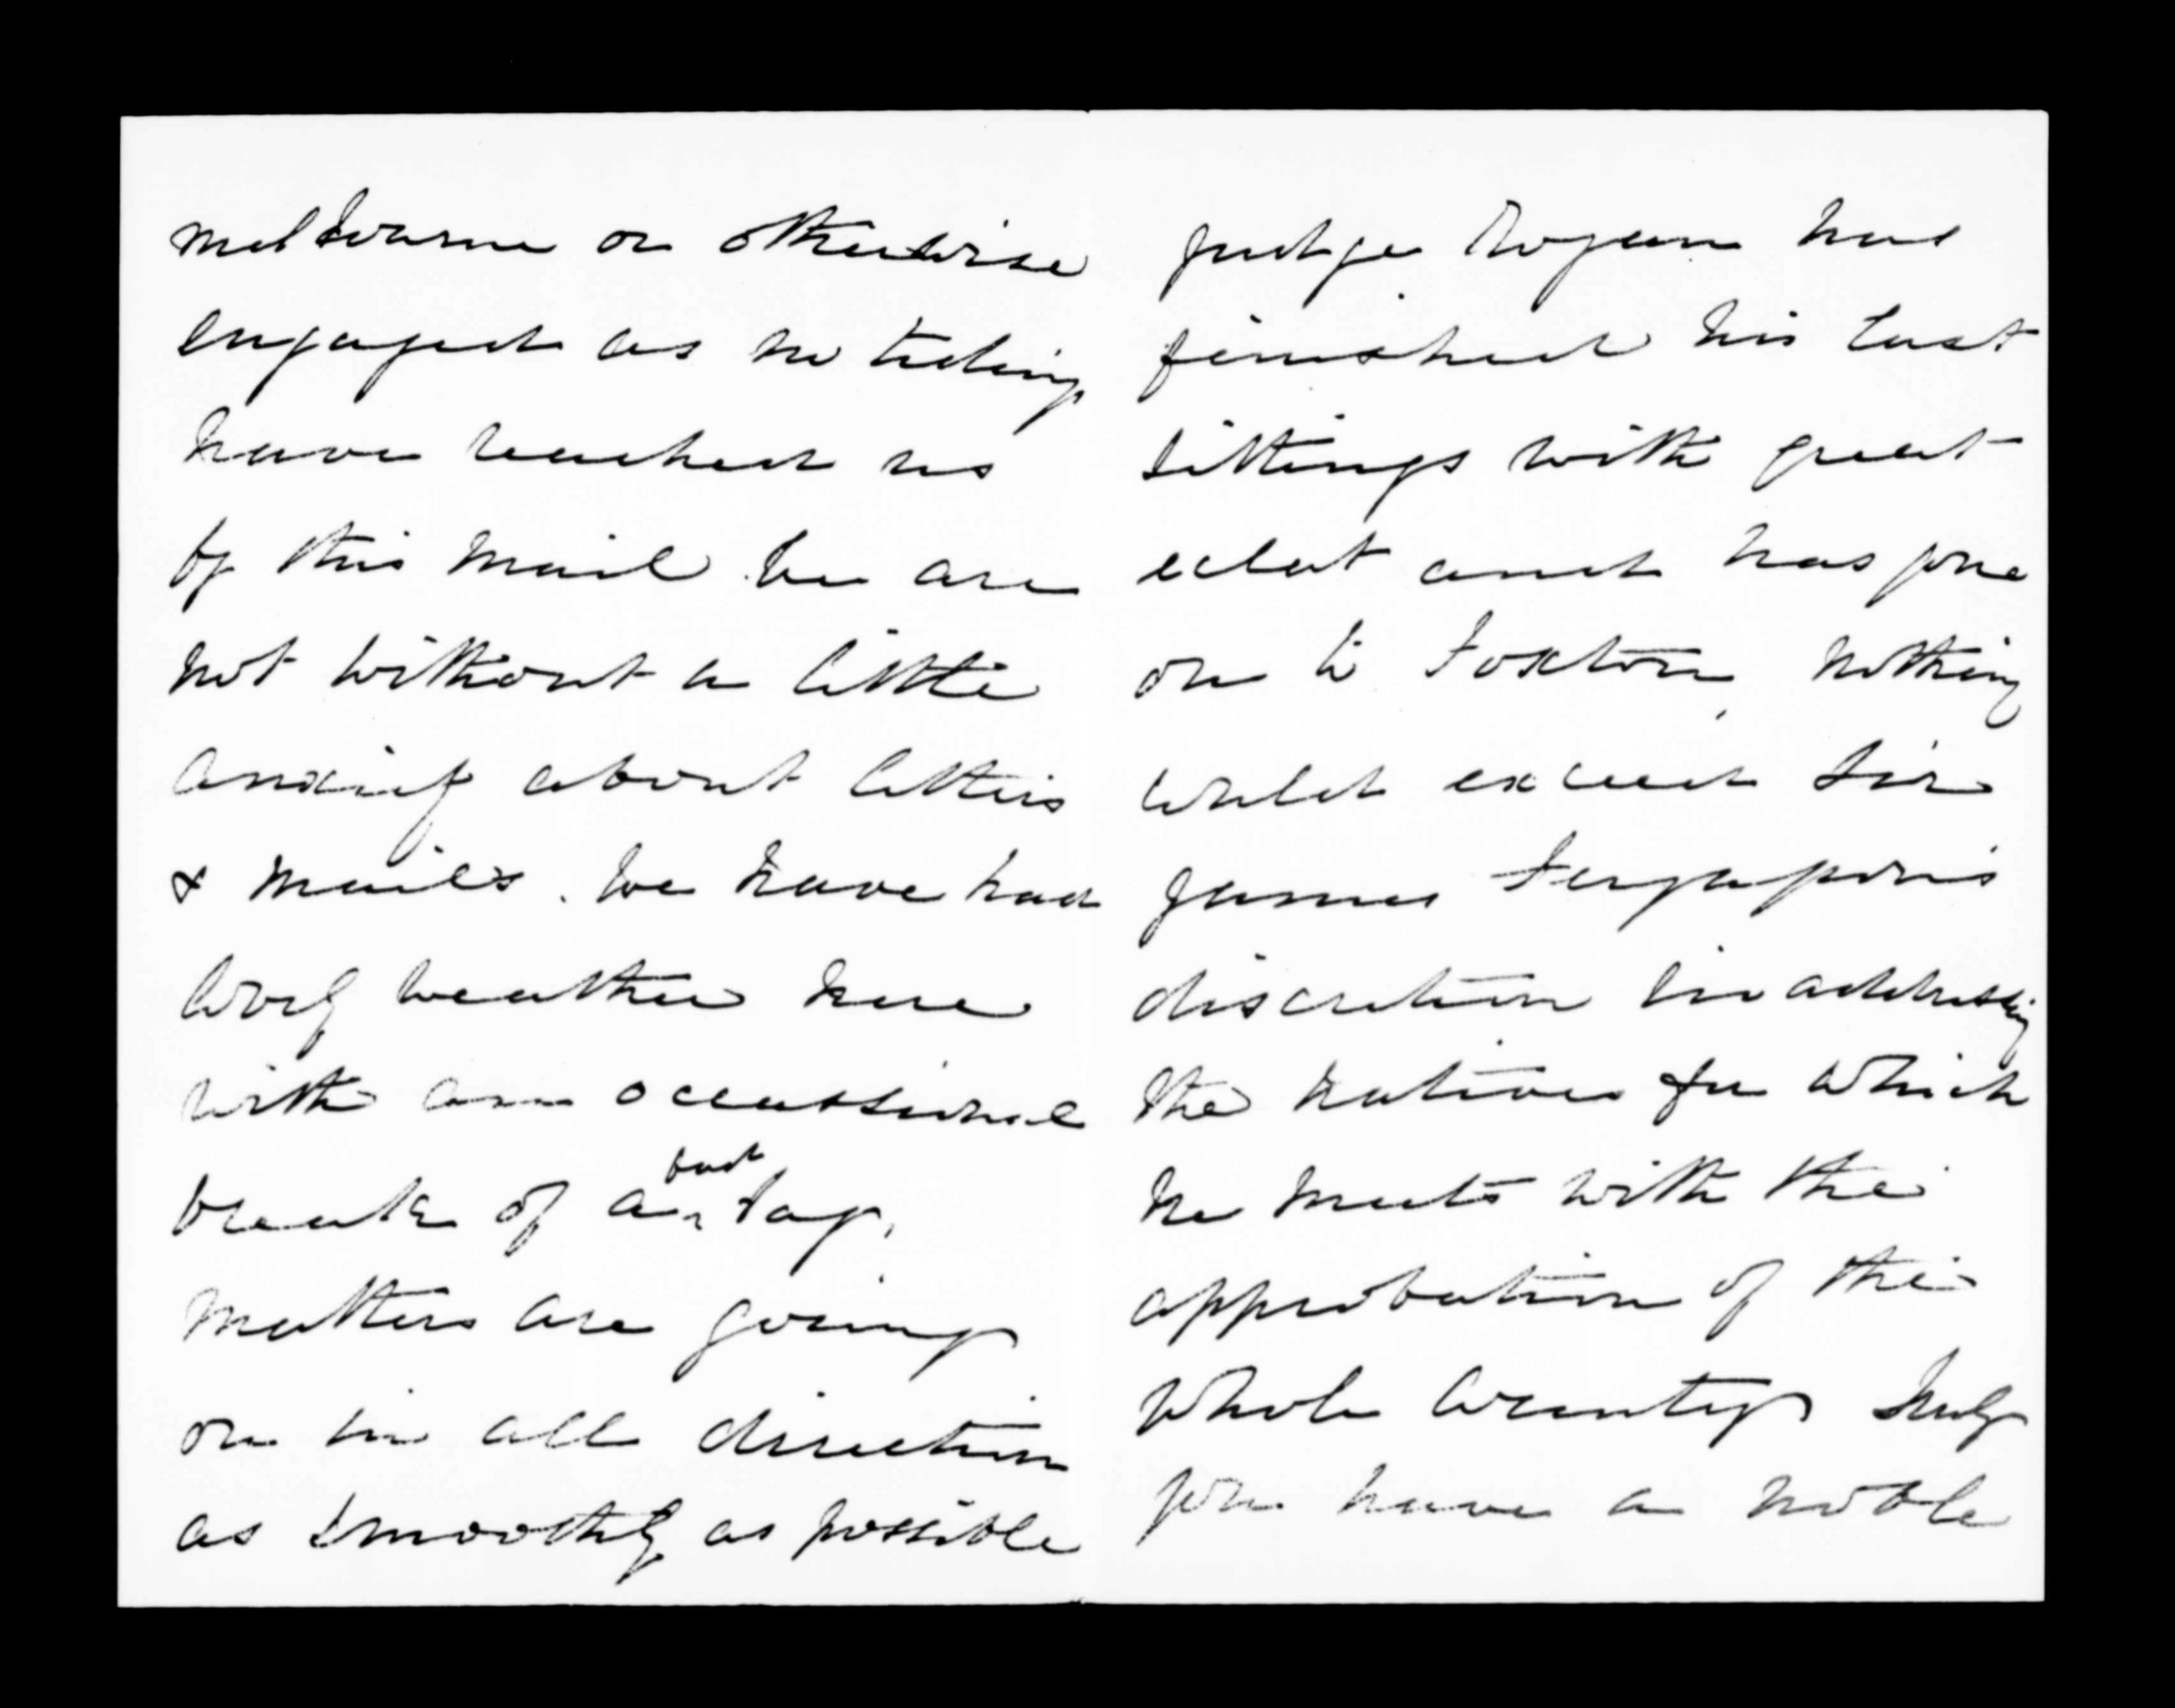 Melbourne or otherwise
engaged as no tiding
have reached us
by this mail. We are
not without a little
anxiety about letters
& mails. We have had
lovely weather here
with an occassional
break of a bad day.
Matters are going
on in all direction
as smoothly as possible
Judge Rogan has
finished his last
sittings with great
eclat and has gone
on to Foxton, nothing
could exceed Sir
James Fergusson's
discretion in addressing
the natives for which
he meets with the
approbation of the
whole country truly
you have a noble